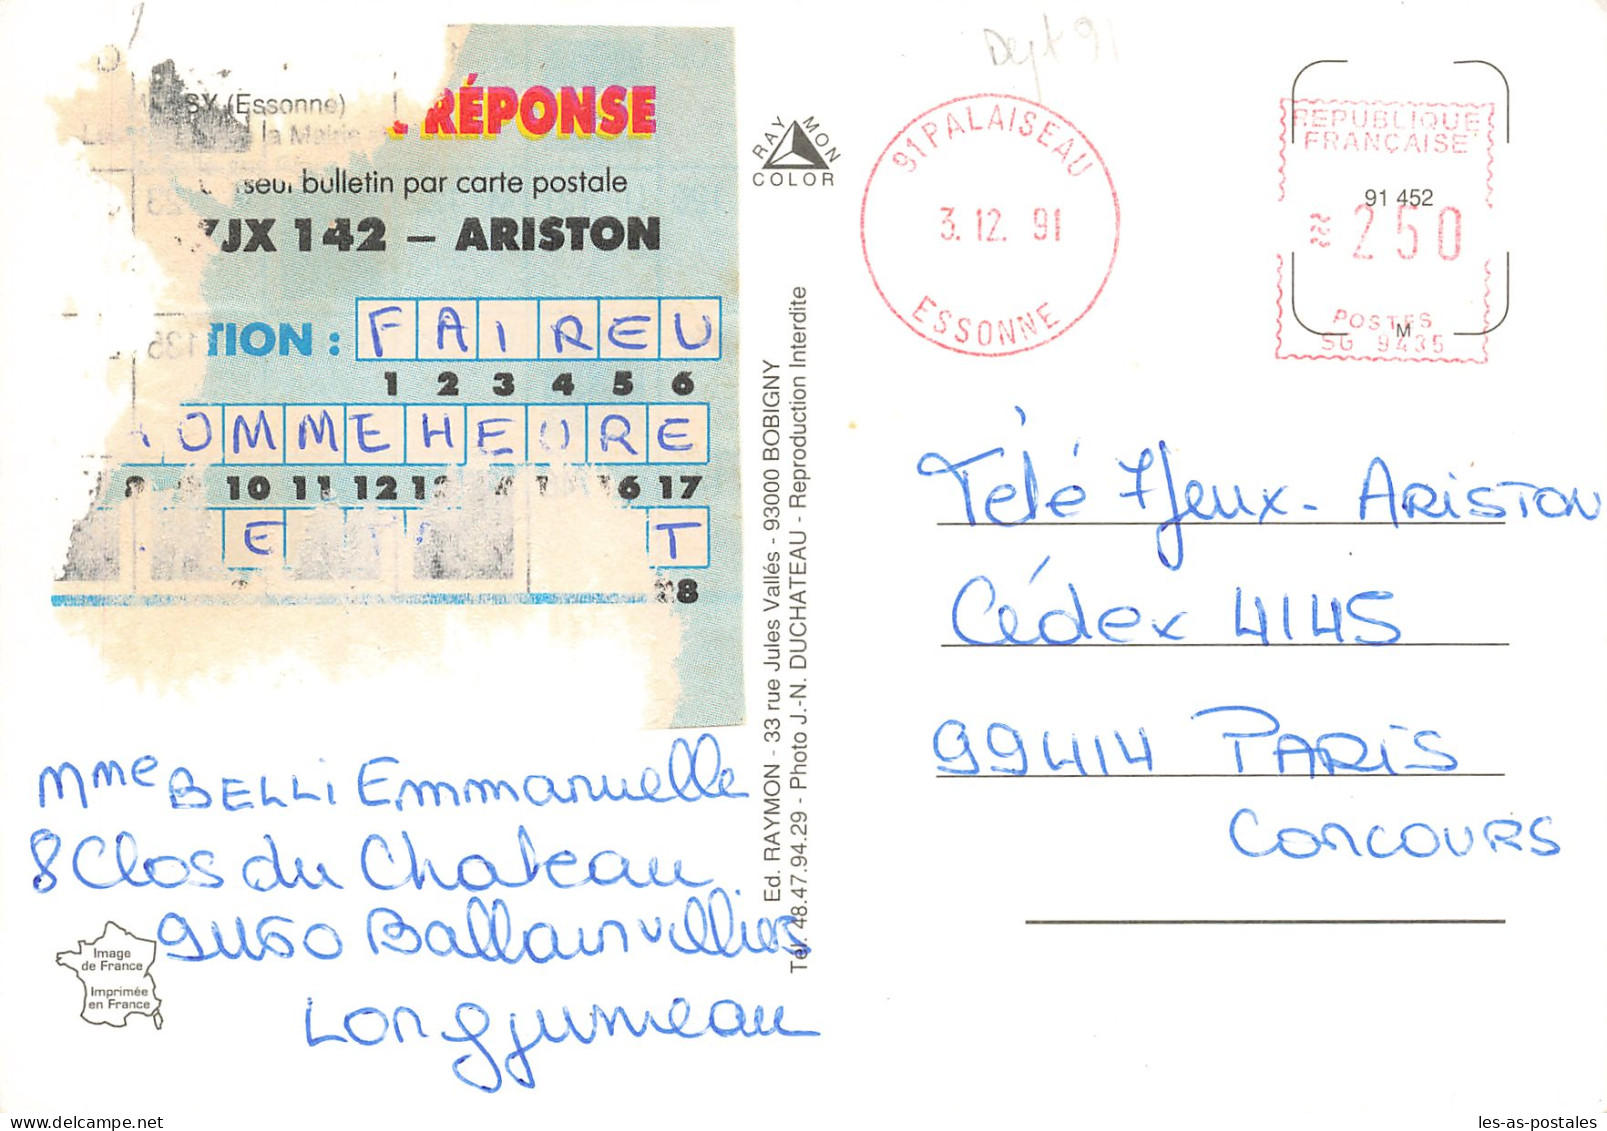 Dept 91
SY (Essonne)
la Mairie
RÉPONSE
seul bulletin par carte postale
7JX 142 – ARISTON
TION : FAIREU
1 2 3 4 5 6
OMMEHEURE
8 9 10 11 12 13 14 15 16 17
E T
28
Mme BELLI Emmanuelle
8 Clos du Chateau
91160 Ballainvilliers
Longjumeau
Image
de France
Imprimée
en France
RAYMON
COLOR
Ed. RAYMON - 33 rue Jules Vallés - 93000 BOBIGNY
Tel. 48.47.94.29 - Photo J.-N. DUCHATEAU - Reproduction Interdite
91 PALAISEAU
3.12.91
ESSONNE
REPUBLIQUE
FRANÇAISE
91 452
250
POSTES
M
SG 9435
Télé 7 Jeux - ARISTON
Cédex 4145
99414 PARIS
CONCOURS
les-as-postales